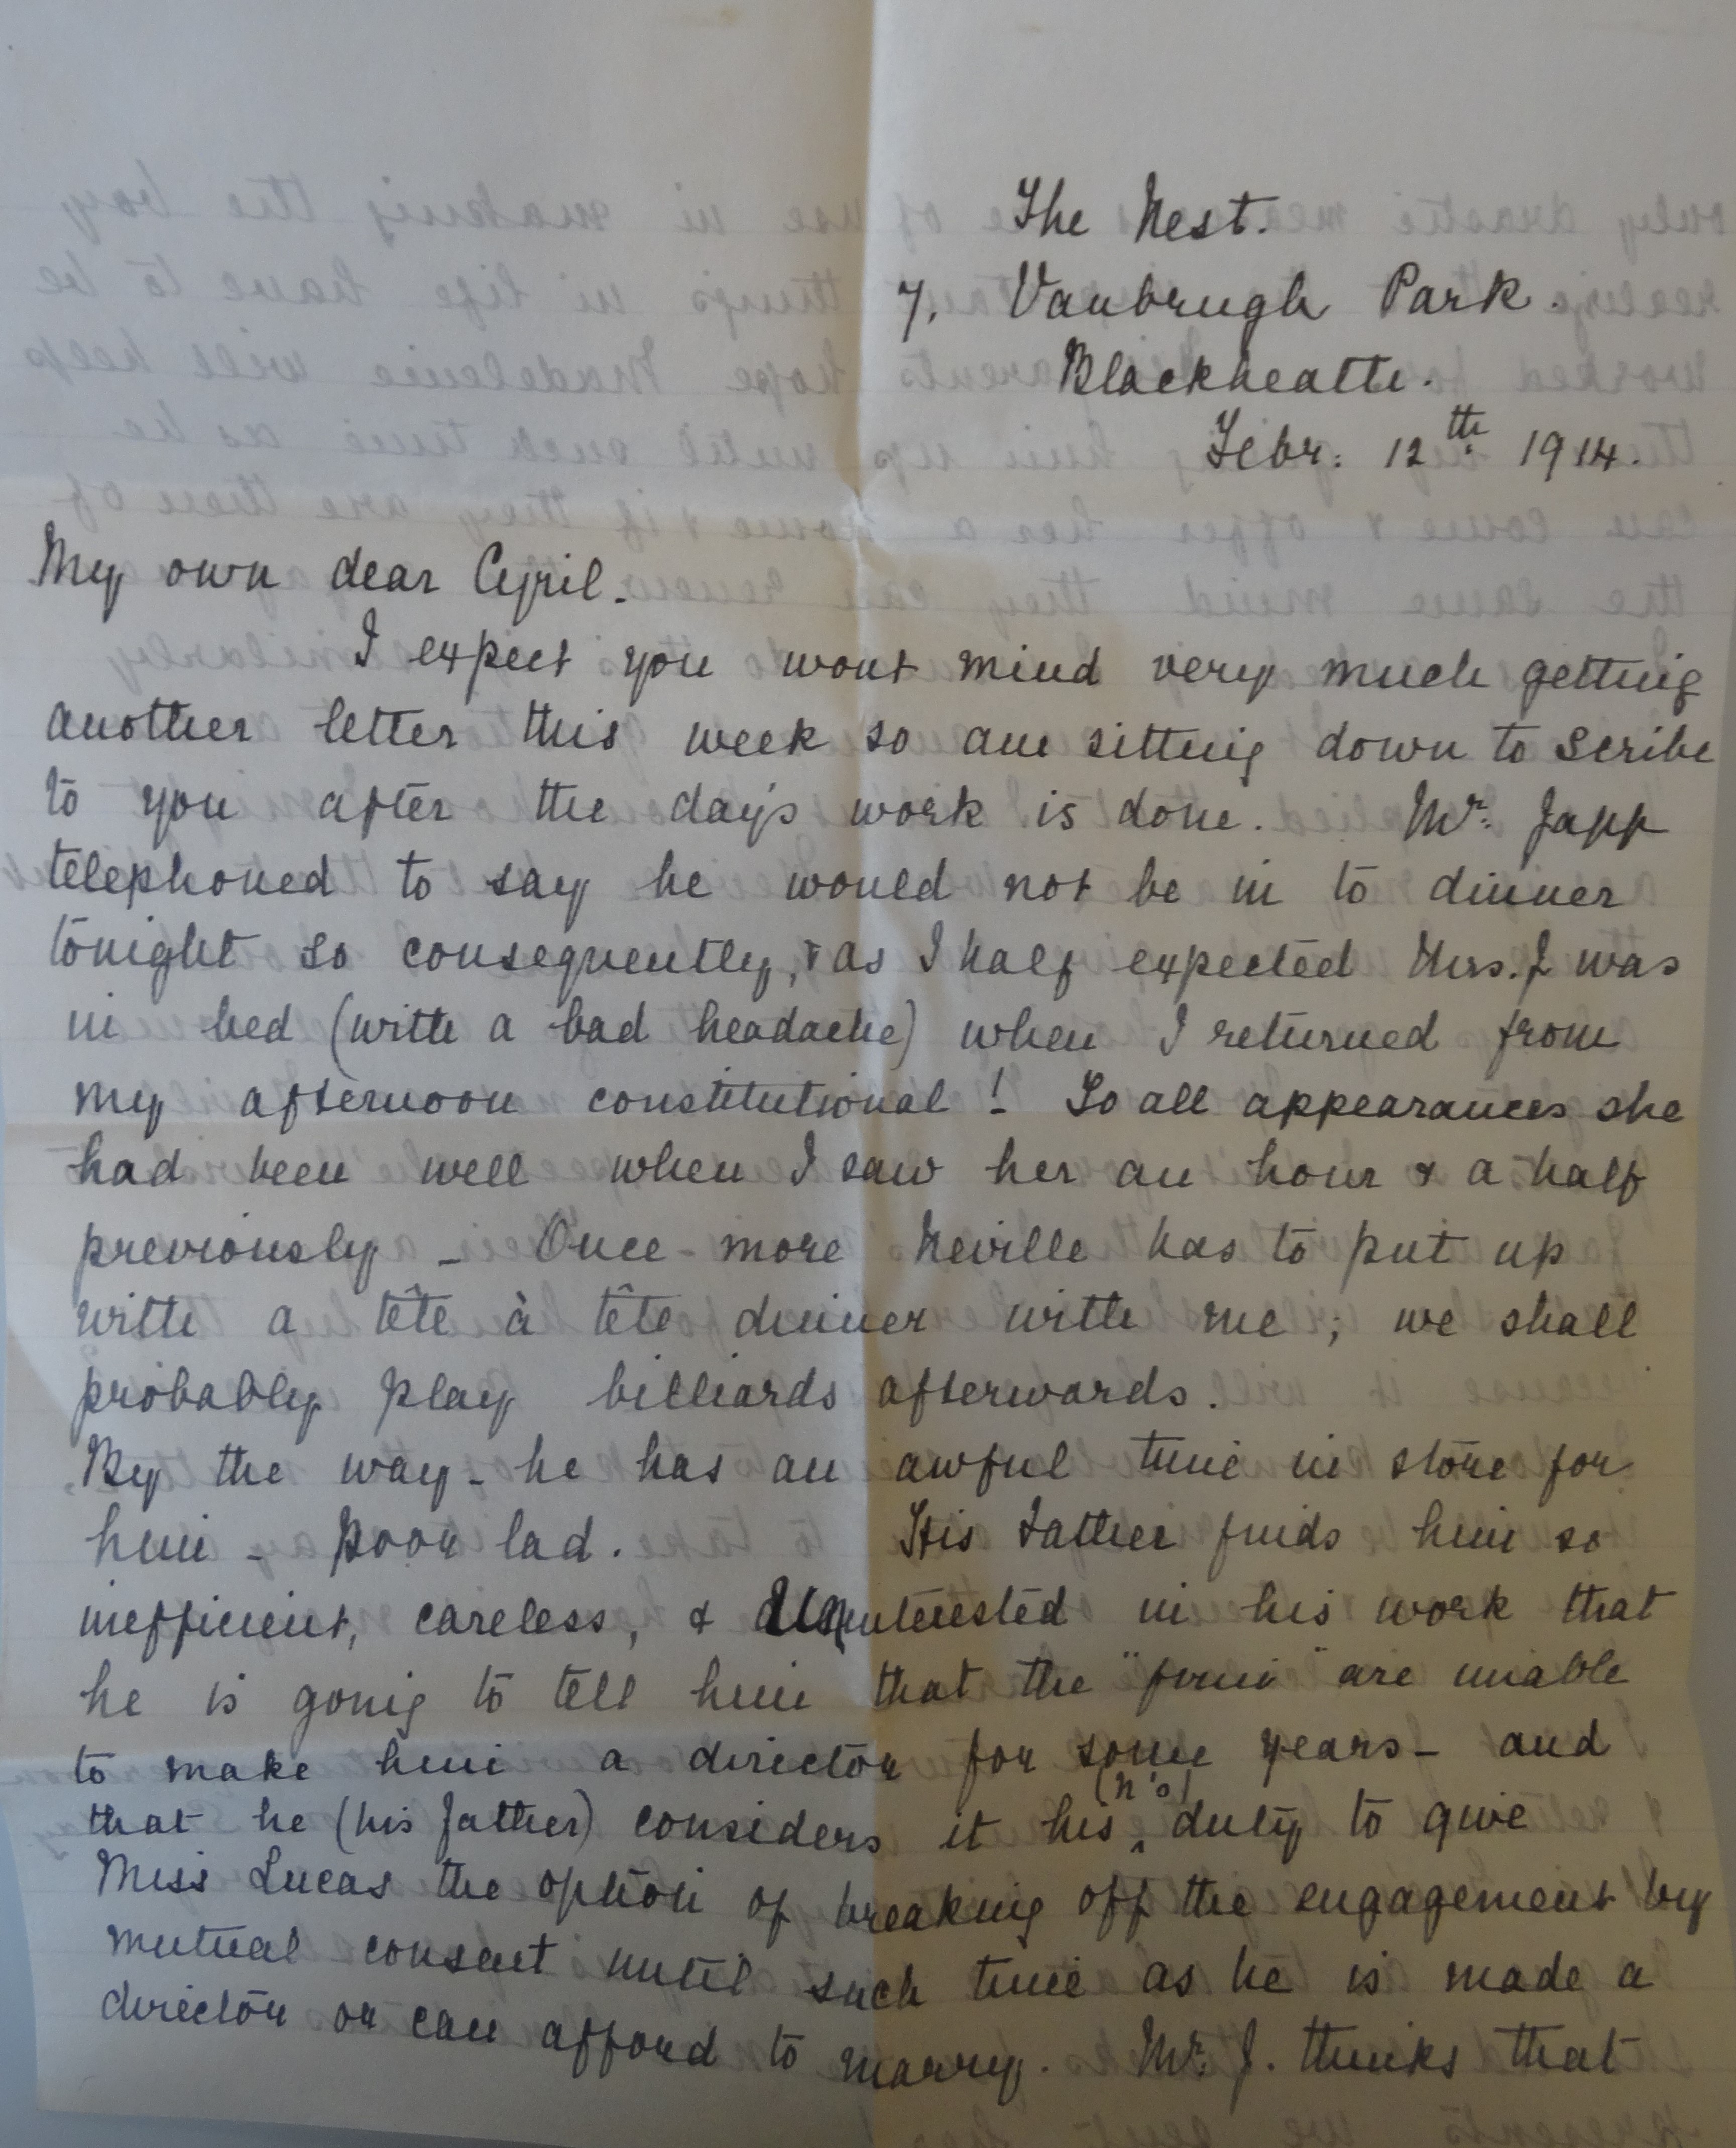 The Nest.
7, Vanbrugh Park.
Blackheath.
Febr: 12th 1914.
My own dear Cyril.
I expect you wont mind very much getting
another letter this week so am sitting down to scribe
to you after the day's work is done. Mr. Japp
telephoned to say he would not be in to dinner
tonight so consequently, & as I half expected Mrs. J was
in bed (with a bad headache) when I returned from
my afternoon constitutional! To all appearances she
had been well when I saw her an hour & a half
previously - Once more Neville has to put up
with a tête à tête dinner with me; we shall
probably play billiards afterwards.
By the way - he has an awful time in store for
him - poor lad. His Father finds him so
inefficient, careless, & uninterested in his work that
he is going to tell him that the "firm" are unable
to make him a director for some years - and
that he (his father) considers it his (N's) duty to give
Miss Lucas the option of breaking off the engagement by
mutual consent until such time as he is made a
director or can afford to marry. Mr. J. thinks that